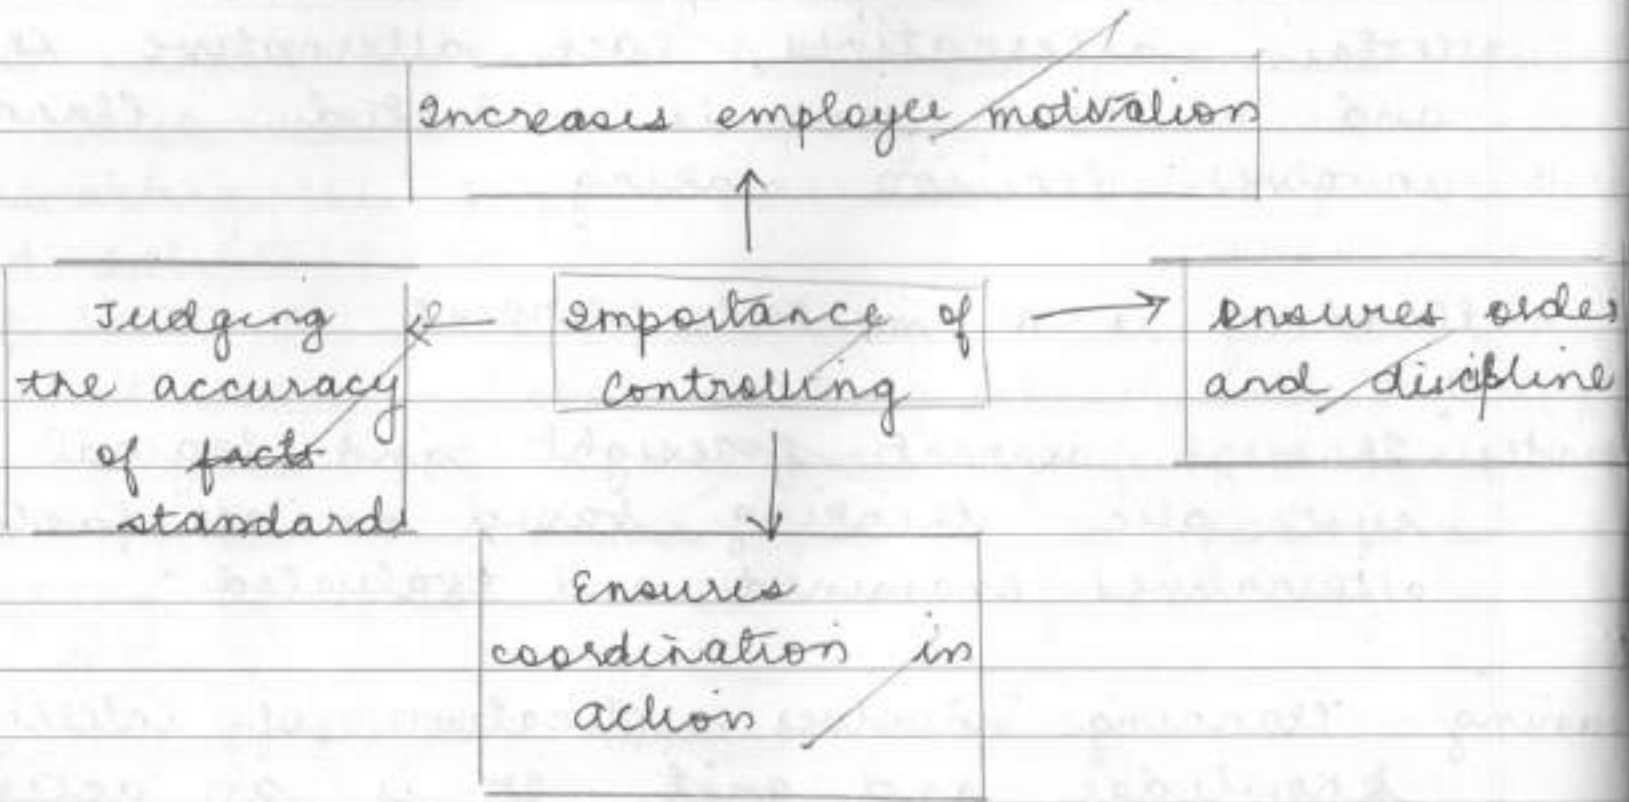 Increases employee motivation
Judging
the accuracy
of facts
standards
Importance of
Controlling
Ensures order
and discipline
Ensures
coordination in
action